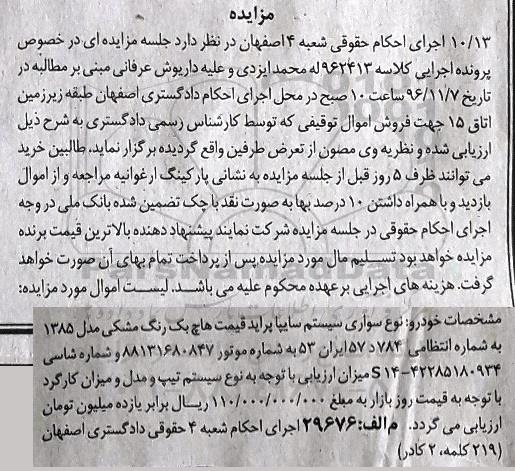 مزایده
۱۰/۱۳ اجرای احکام حقوقی شعبه ۴ اصفهان در نظر دارد جلسه مزایده ای در خصوص
پرونده اجرایی کلاسه ۹۶۲۴۱۳ له محمد ایزدی و علیه داریوش عرفانی مبنی بر مطالبه در
تاریخ ۹۶/۱۱/۷ ساعت ۱۰ صبح در محل اجرای احکام دادگستری اصفهان طبقه زیرزمین
اتاق ۱۵ جهت فروش اموال توقیفی که توسط کارشناس رسمی دادگستری به شرح ذیل
ارزیابی شده و نظریه وی مصون از تعرض طرفین واقع گردیده برگزار نماید. طالبین خرید
می توانند ظرف ۵ روز قبل از جلسه مزایده به نشانی پارکینگ ارغوانیه مراجعه و از اموال
بازدید و با همراه داشتن ۱۰ درصد بها به صورت نقد یا چک تضمین شده بانک ملی در وجه
اجرای احکام حقوقی در جلسه مزایده شرکت نمایند پیشنهاد دهنده بالاترین قیمت برنده
مزایده خواهد بود تسلیم مال مورد مزایده پس از پرداخت تمام بهای آن صورت خواهد
گرفت. هزینه های اجرایی بر عهده محکوم علیه می باشد. لیست اموال مورد مزایده:
مشخصات خودرو: نوع سواری سیستم سایپا پراید قیمت هاچ بک رنگ مشکی مدل ۱۳۸۵
به شماره انتظامی ۷۸۴ د ۵۷ ایران ۵۳ به شماره موتور ۸۸۱۳۱۶۸۰۸۴۷ و شماره شاسی
S۱۴-۴۲۲۸۵۱۸۰۹۳۴ میزان ارزیابی با توجه به نوع سیستم تیپ و مدل و میزان کارکرد
با توجه به قیمت روز بازار به مبلغ ۱۱۰/۰۰۰/۰۰۰ ریال برابر یازده میلیون تومان
ارزیابی می گردد. م الف: ۲۹۶۷۶ اجرای احکام شعبه ۴ حقوقی دادگستری اصفهان
(۲۱۹ کلمه، ۲ کادر)